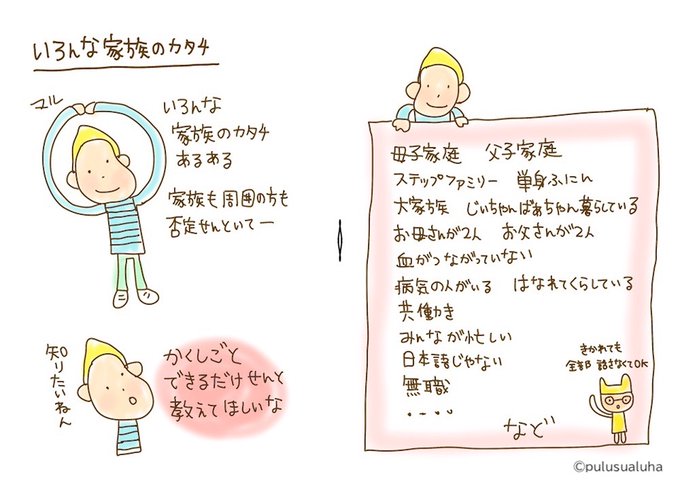 いろんな家族のカタチ
マル
いろんな
家族のカタチ
あるある
家族も周囲の方も
否定せんといてー
知りたいねん
かくしごと
できるだけせんと
教えてほしいな
母子家庭 父子家庭
ステップファミリー 単身ふにん
大家族 じいちゃんばあちゃん暮らしている
お母さんが2人 お父さんが2人
血がつながっていない
病気の人がいる はなれてくらしている
共働き
みんなが忙しい
日本語じゃない
無職
・・・・
など
きかれても
全部話さなくてOK
©pulusualuha